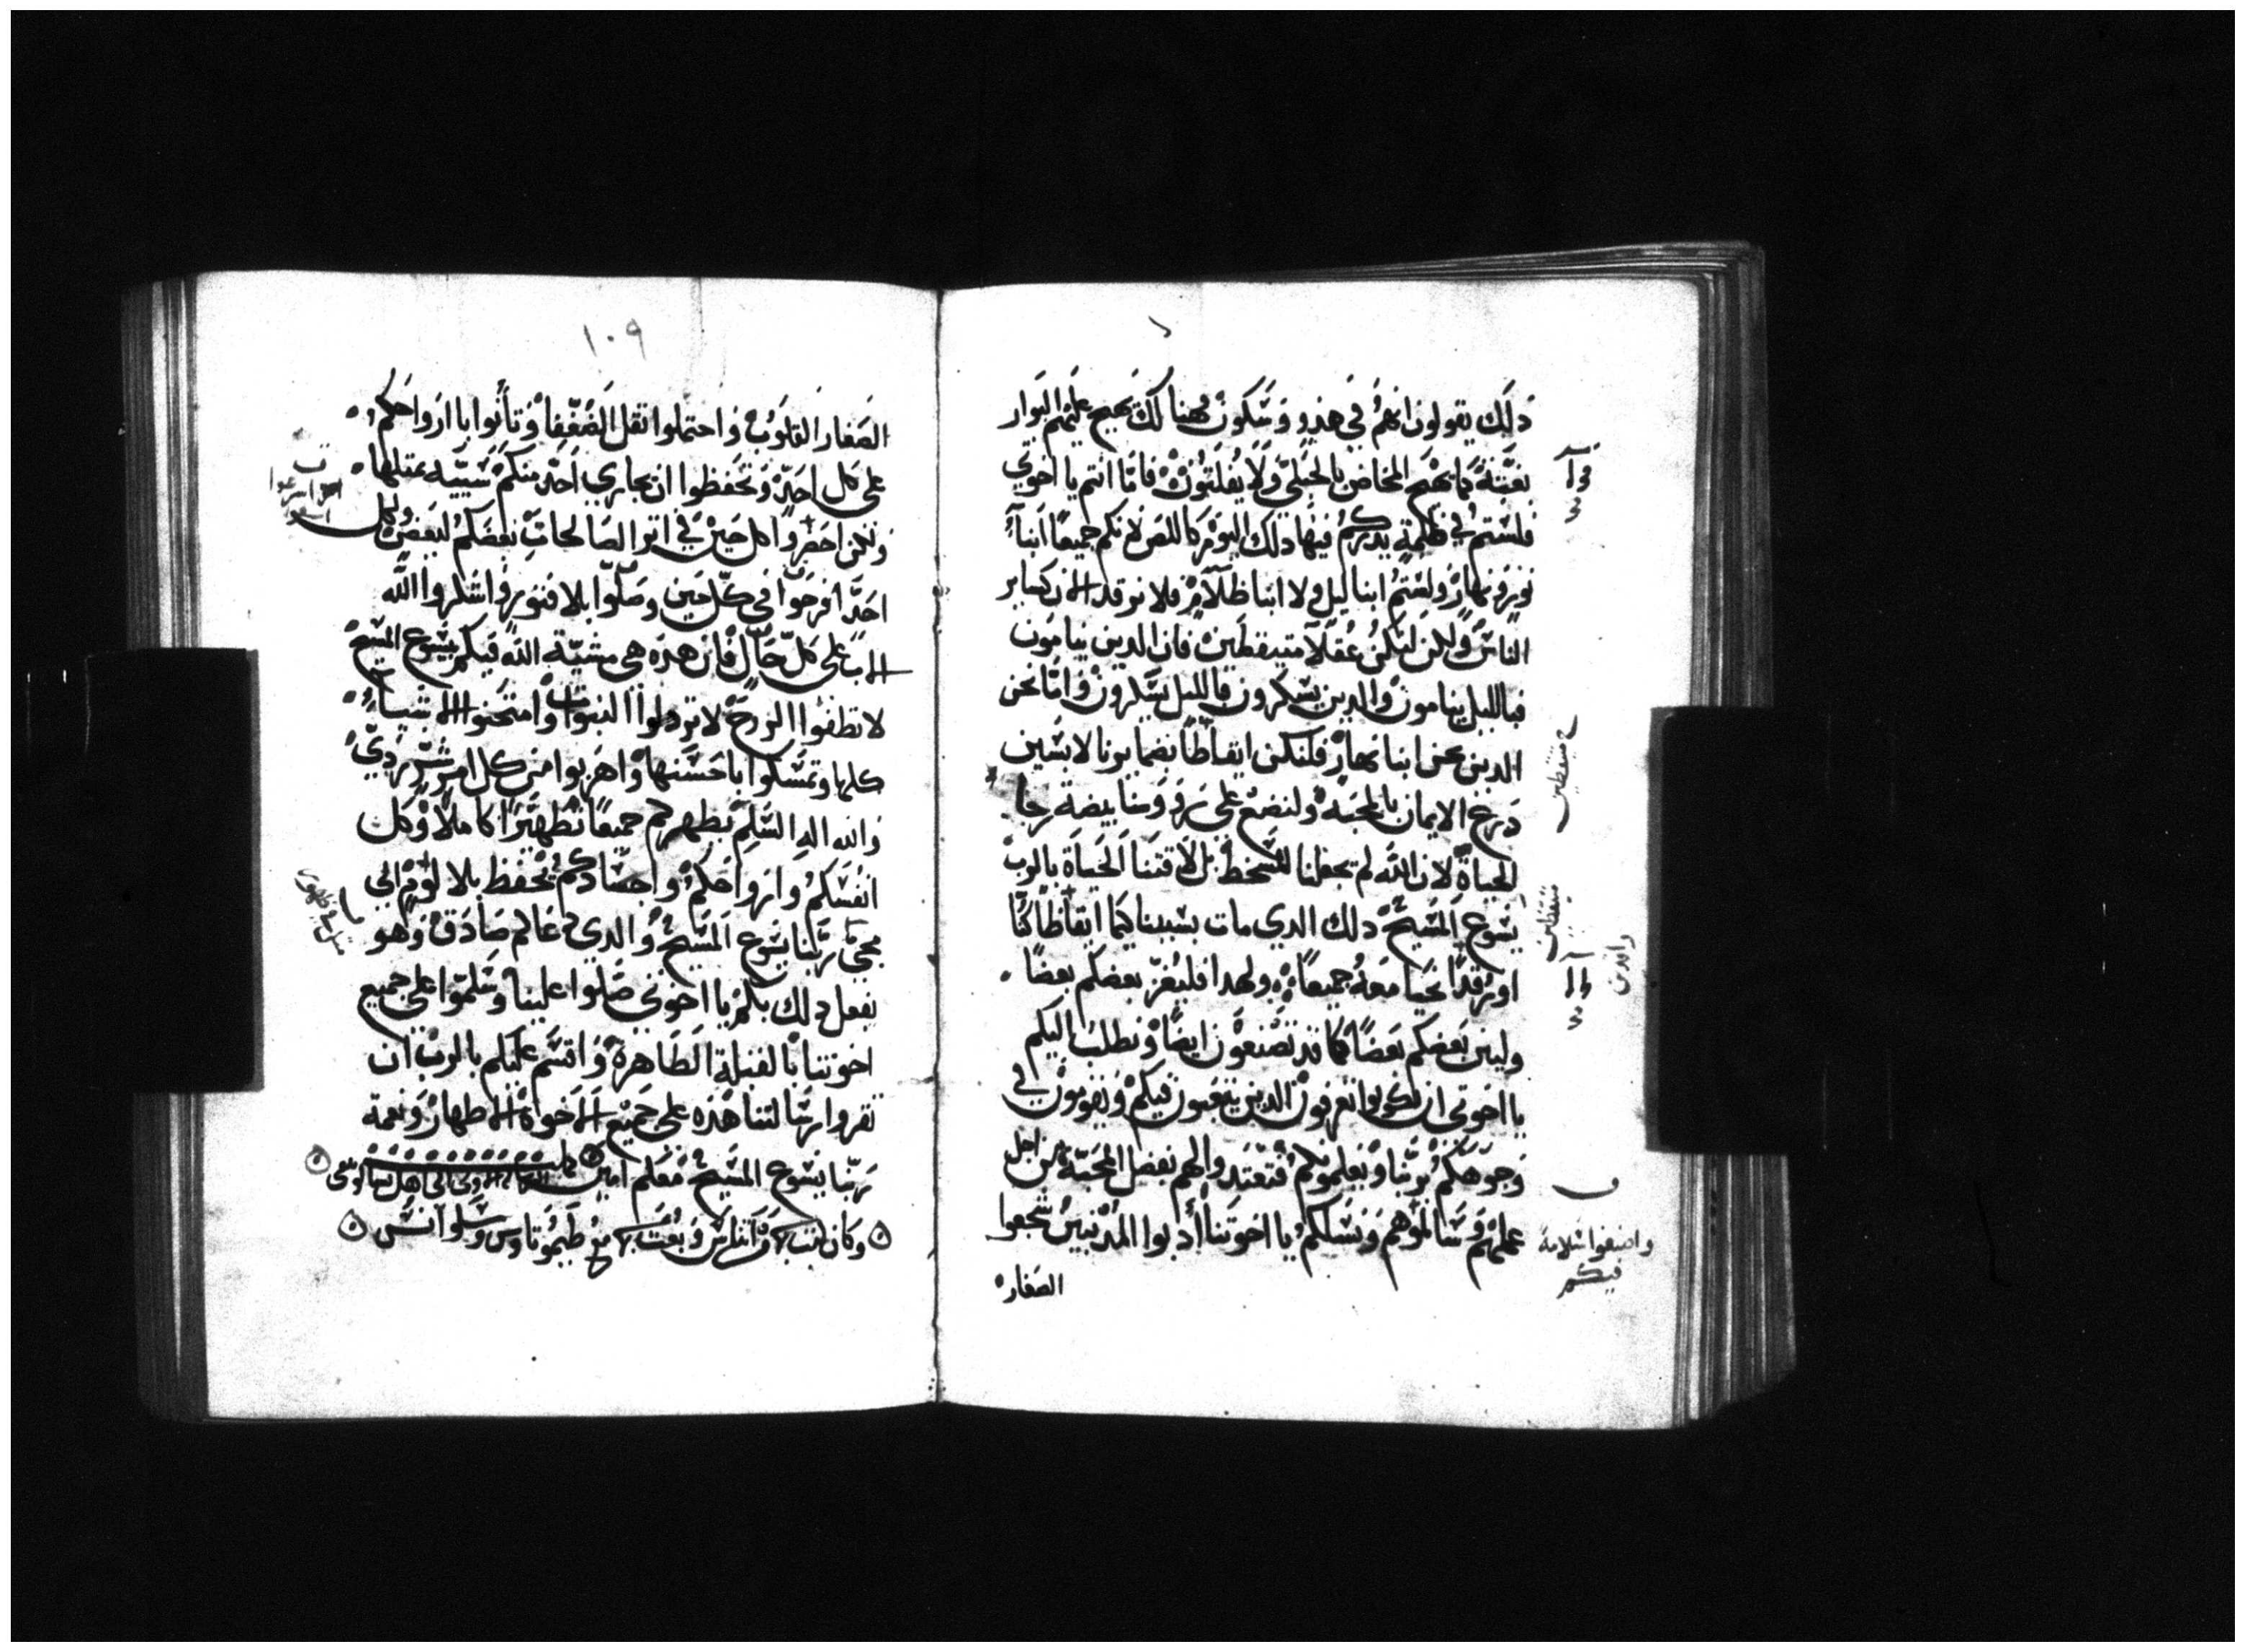 ذلك يقولون انهم في هدو وسكون فهنالك يهيج عليهم البوار
بغتة كما يهيج المخاض بالحبلى ولا يفلتون فامّا انتم يا اخوتي
فلستم في ظلمة يدرككم فيها ذلك اليوم كاللص لانكم جميعًا ابناء
نور ونهار ولستم ابنا ليل ولا ابنا ظلام فلا نرقد الان كساير
الناس ولكن لنكن عقلا متيقظين فان الدين ينامون
فبالليل ينامون والدين يسكرون فالليل يسكرون وامّا نحن
الدين نحن ابنا نهار فلنكن ايقاظًا بضمايرنا لابسين
درع الايمان بالمحبة ولنضع على رووسنا بيضة رجا
الحياة لان الله لم يجعلنا للسخط بل لاقتنا الحياة بالرب
يسوع المسيح ذلك الدي مات بسببنا كيما ايقاظًا كنّا
او رقدًا نحيا معه جميعًا ولهدا فليعزّ بعضكم بعضًا
وليبن بعضكم بعضًا كما قد تصنعون ايضًا ونطلب اليكم
يا اخوتي ان تكونوا تعرفون الدين يتعبون فيكم ويقومون في
وجوهكم بربّنا ويعلمونكم فتعتدوا لهم بفضل المحبّة من اجل
عملهم وسالموهم ونسلكم يا اخوتنا أدبوا المدنبين شجعوا
الصغار
متيقظين
متيقظين
والدين
واصنعوا سلامة
فيكم
١٠٩
الصغار القلوب واحتملوا ثقل الضعفا وتأنوا با ارواحكم
على كل احد وتحفظوا ان يجازي احد منكم سييه بمثلها
ولكن احضروا كل حين في اثر الصالحات بعضكم لبعض ولكل
احد افرحوا في كل حين وصلّوا بلا فتور واشكروا الله
الاب على كلّ حال فان هذه هي مشيّة الله فيكم بيسوع المسيح
لا تطفئوا الروح لا تردلوا النبوات وامتحنوا الاشياء
كلها وتمسكوا باحسنها واهربوا من كل امر شرّ ردي
والله اله السلم يطهركم جميعًا تطهيرًا كاملًا وكل
انفسكم وارواحكم واجسادكم يحفظ بلا لوم الى
مجي ربّنا يسوع المسيح والدي دعاكم صادق وهو
يفعل ذلك بكم يا اخوتي صلوا علينا وسلمّوا على جميع
اخوتنا بالقبلة الطاهرة واقسم عليكم بالرب ان
تقروا رسالتنا هذه على جميع الاخوة الاطهار ونعمة
ربّنا يسوع المسيح معكم امين كملت الرسالة الاولى الى اهل تسالونيقى
وكان كتب بها من اثناس وبعث بها مع طيموتاوس وسلوانس